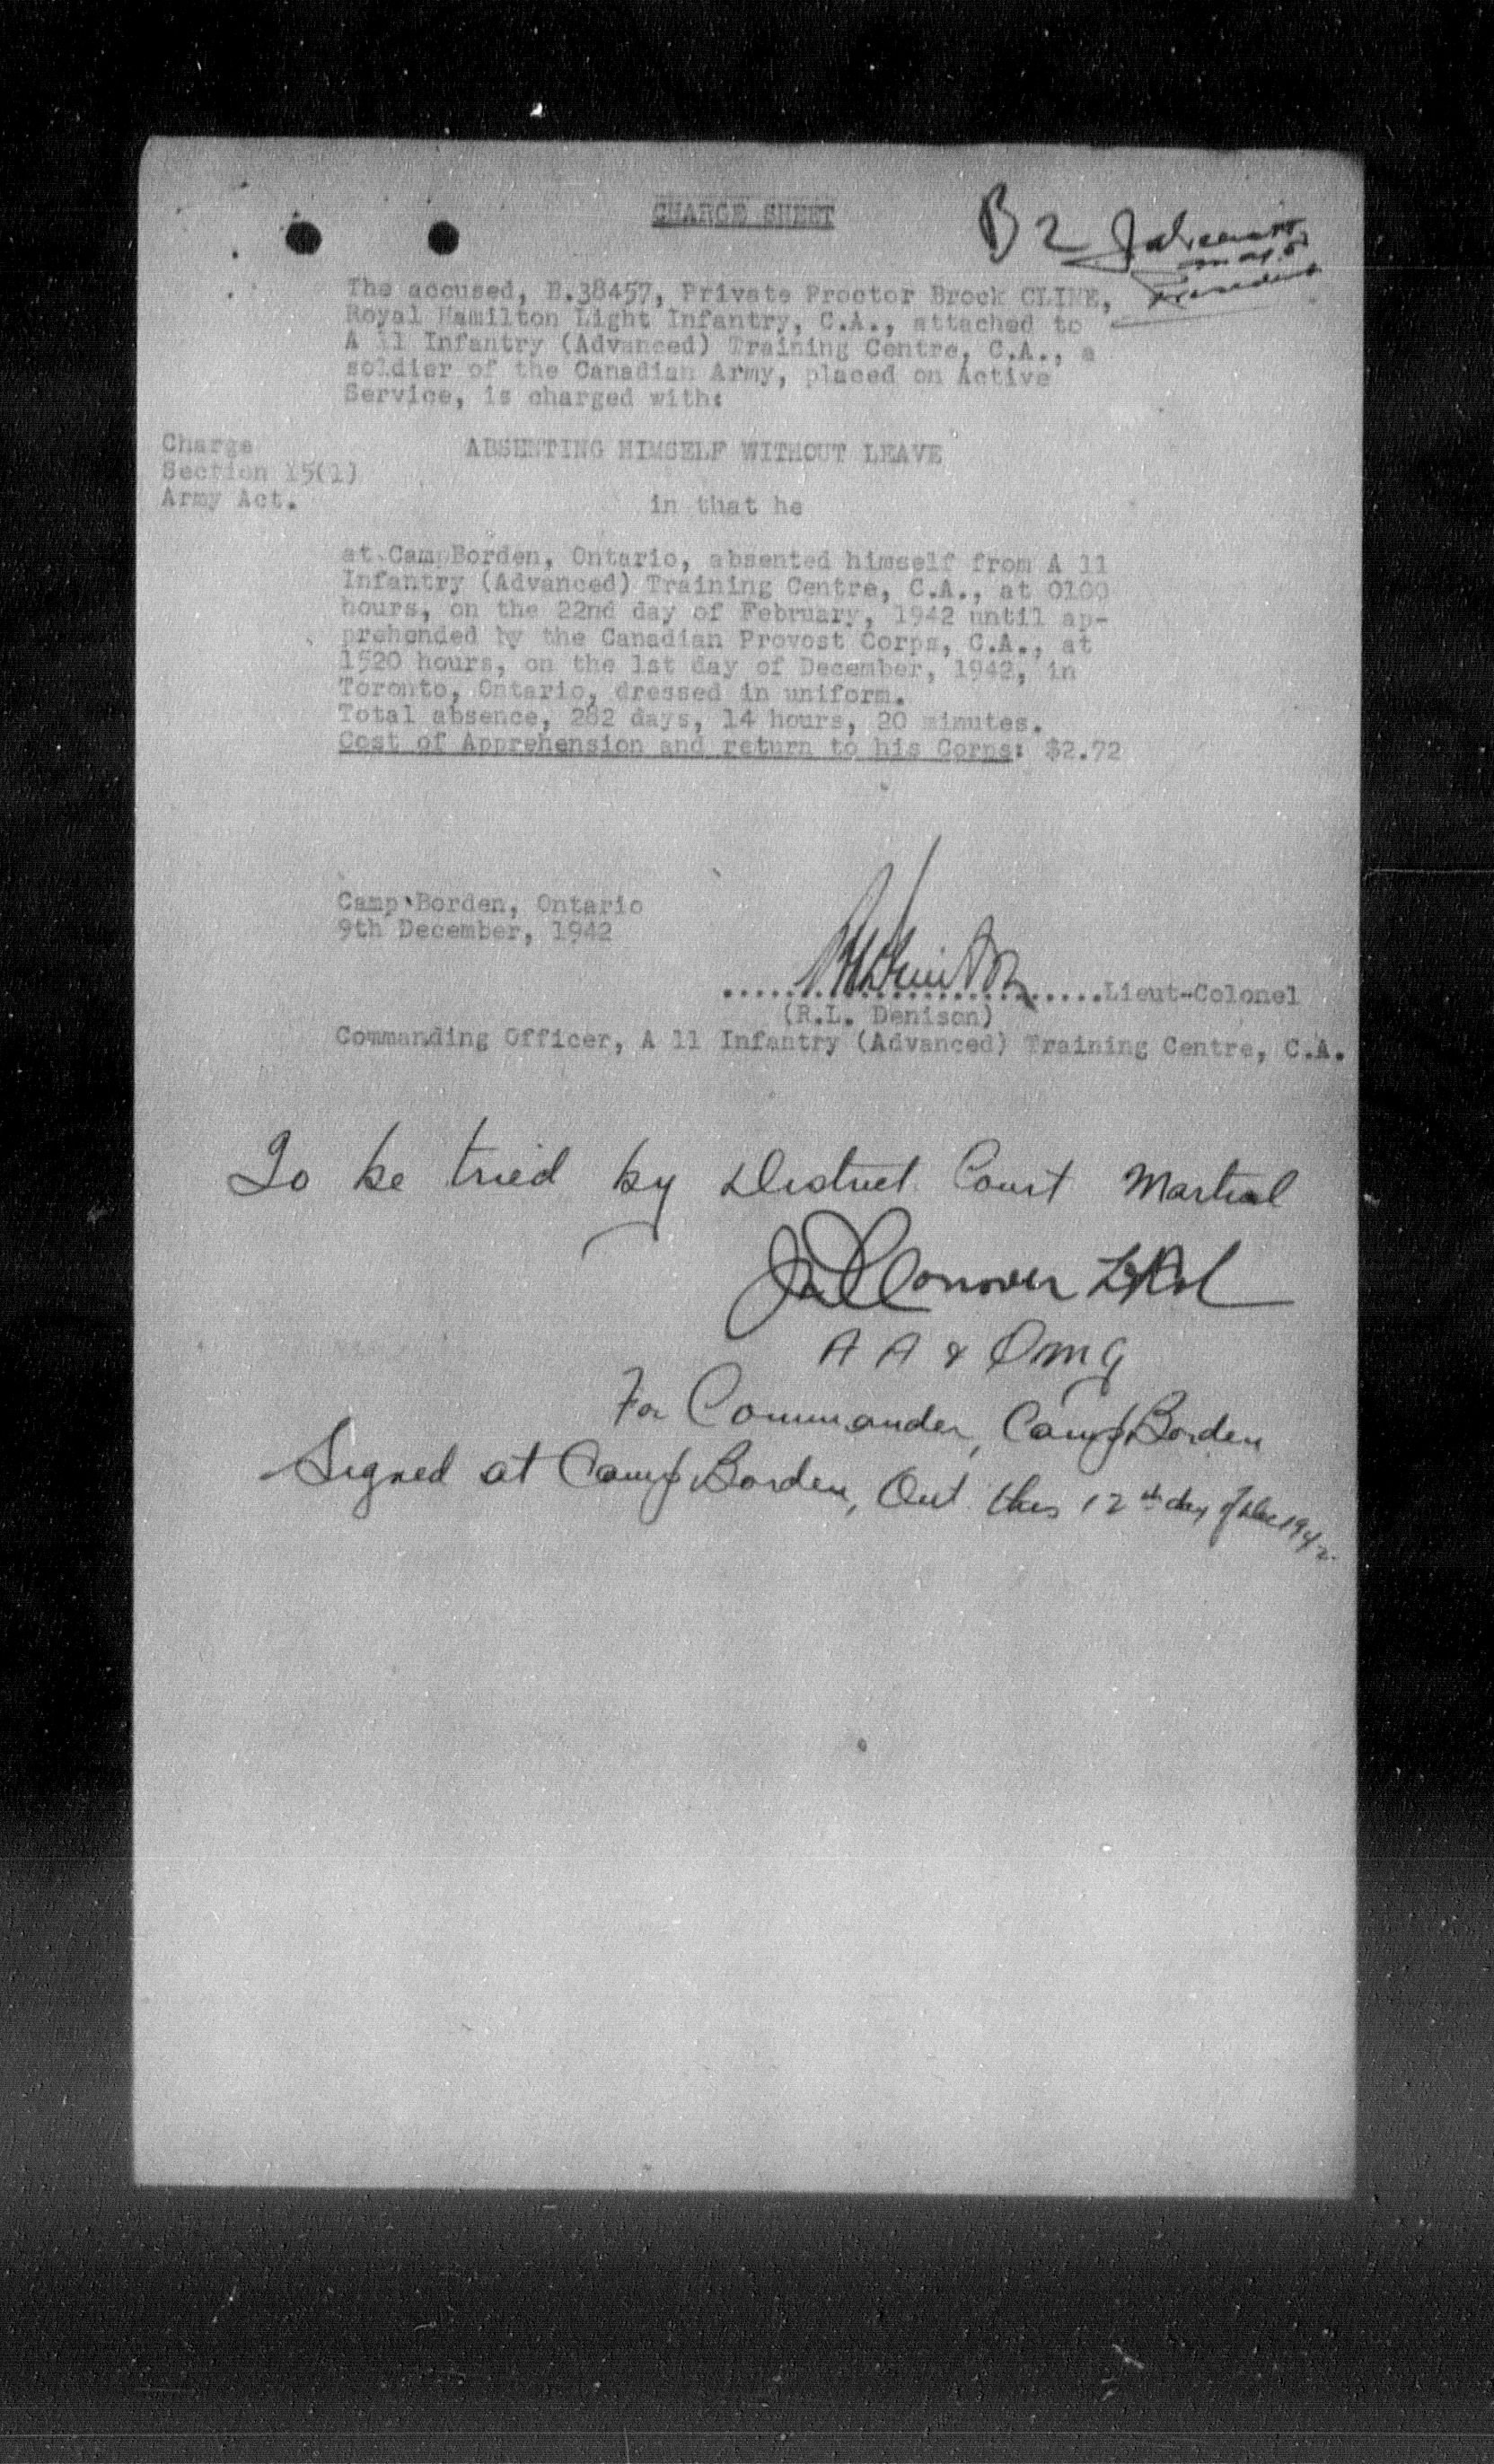 CHARGE SHEET
B 2
The accused, B.38457, Private Proctor Brock CLINE,
Royal Hamilton Light Infantry, C.A., attached to
A 11 Infantry (Advanced) Training Centre, C.A., a
soldier of the Canadian Army, placed on Active
Service, is charged with:
Charge
Section 15(1)
Army Act.
ABSENTING HIMSELF WITHOUT LEAVE
in that he
at CampBorden, Ontario, absented himself from A 11
Infantry (Advanced) Training Centre, C.A., at 0100
hours, on the 22nd day of February, 1942 until ap-
prehended by the Canadian Provost Corps, C.A., at
1520 hours, on the 1st day of December, 1942, in
Toronto, Ontario, dressed in uniform.
Total absence, 282 days, 14 hours, 20 minutes.
Cost of Apprehension and return to his Corps: $2.72
Camp Borden, Ontario
9th December, 1942
Lieut-Colonel
(R.L. Denison)
Commanding Officer, A 11 Infantry (Advanced) Training Centre, C.A.
To be tried by District Court Martial
Conover Lt Col
A A & QMG
For Commander, Camp Borden
Signed at Camp Borden, Ont this 12th day of Dec 1942